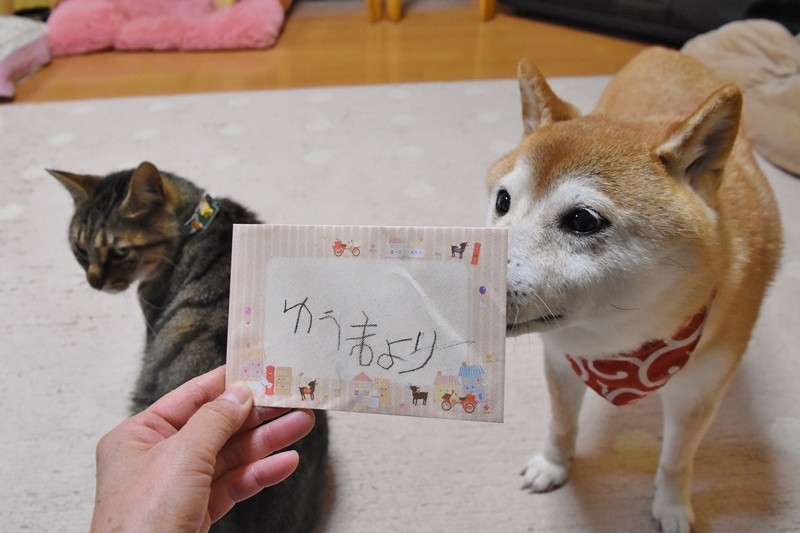 ゆうまより